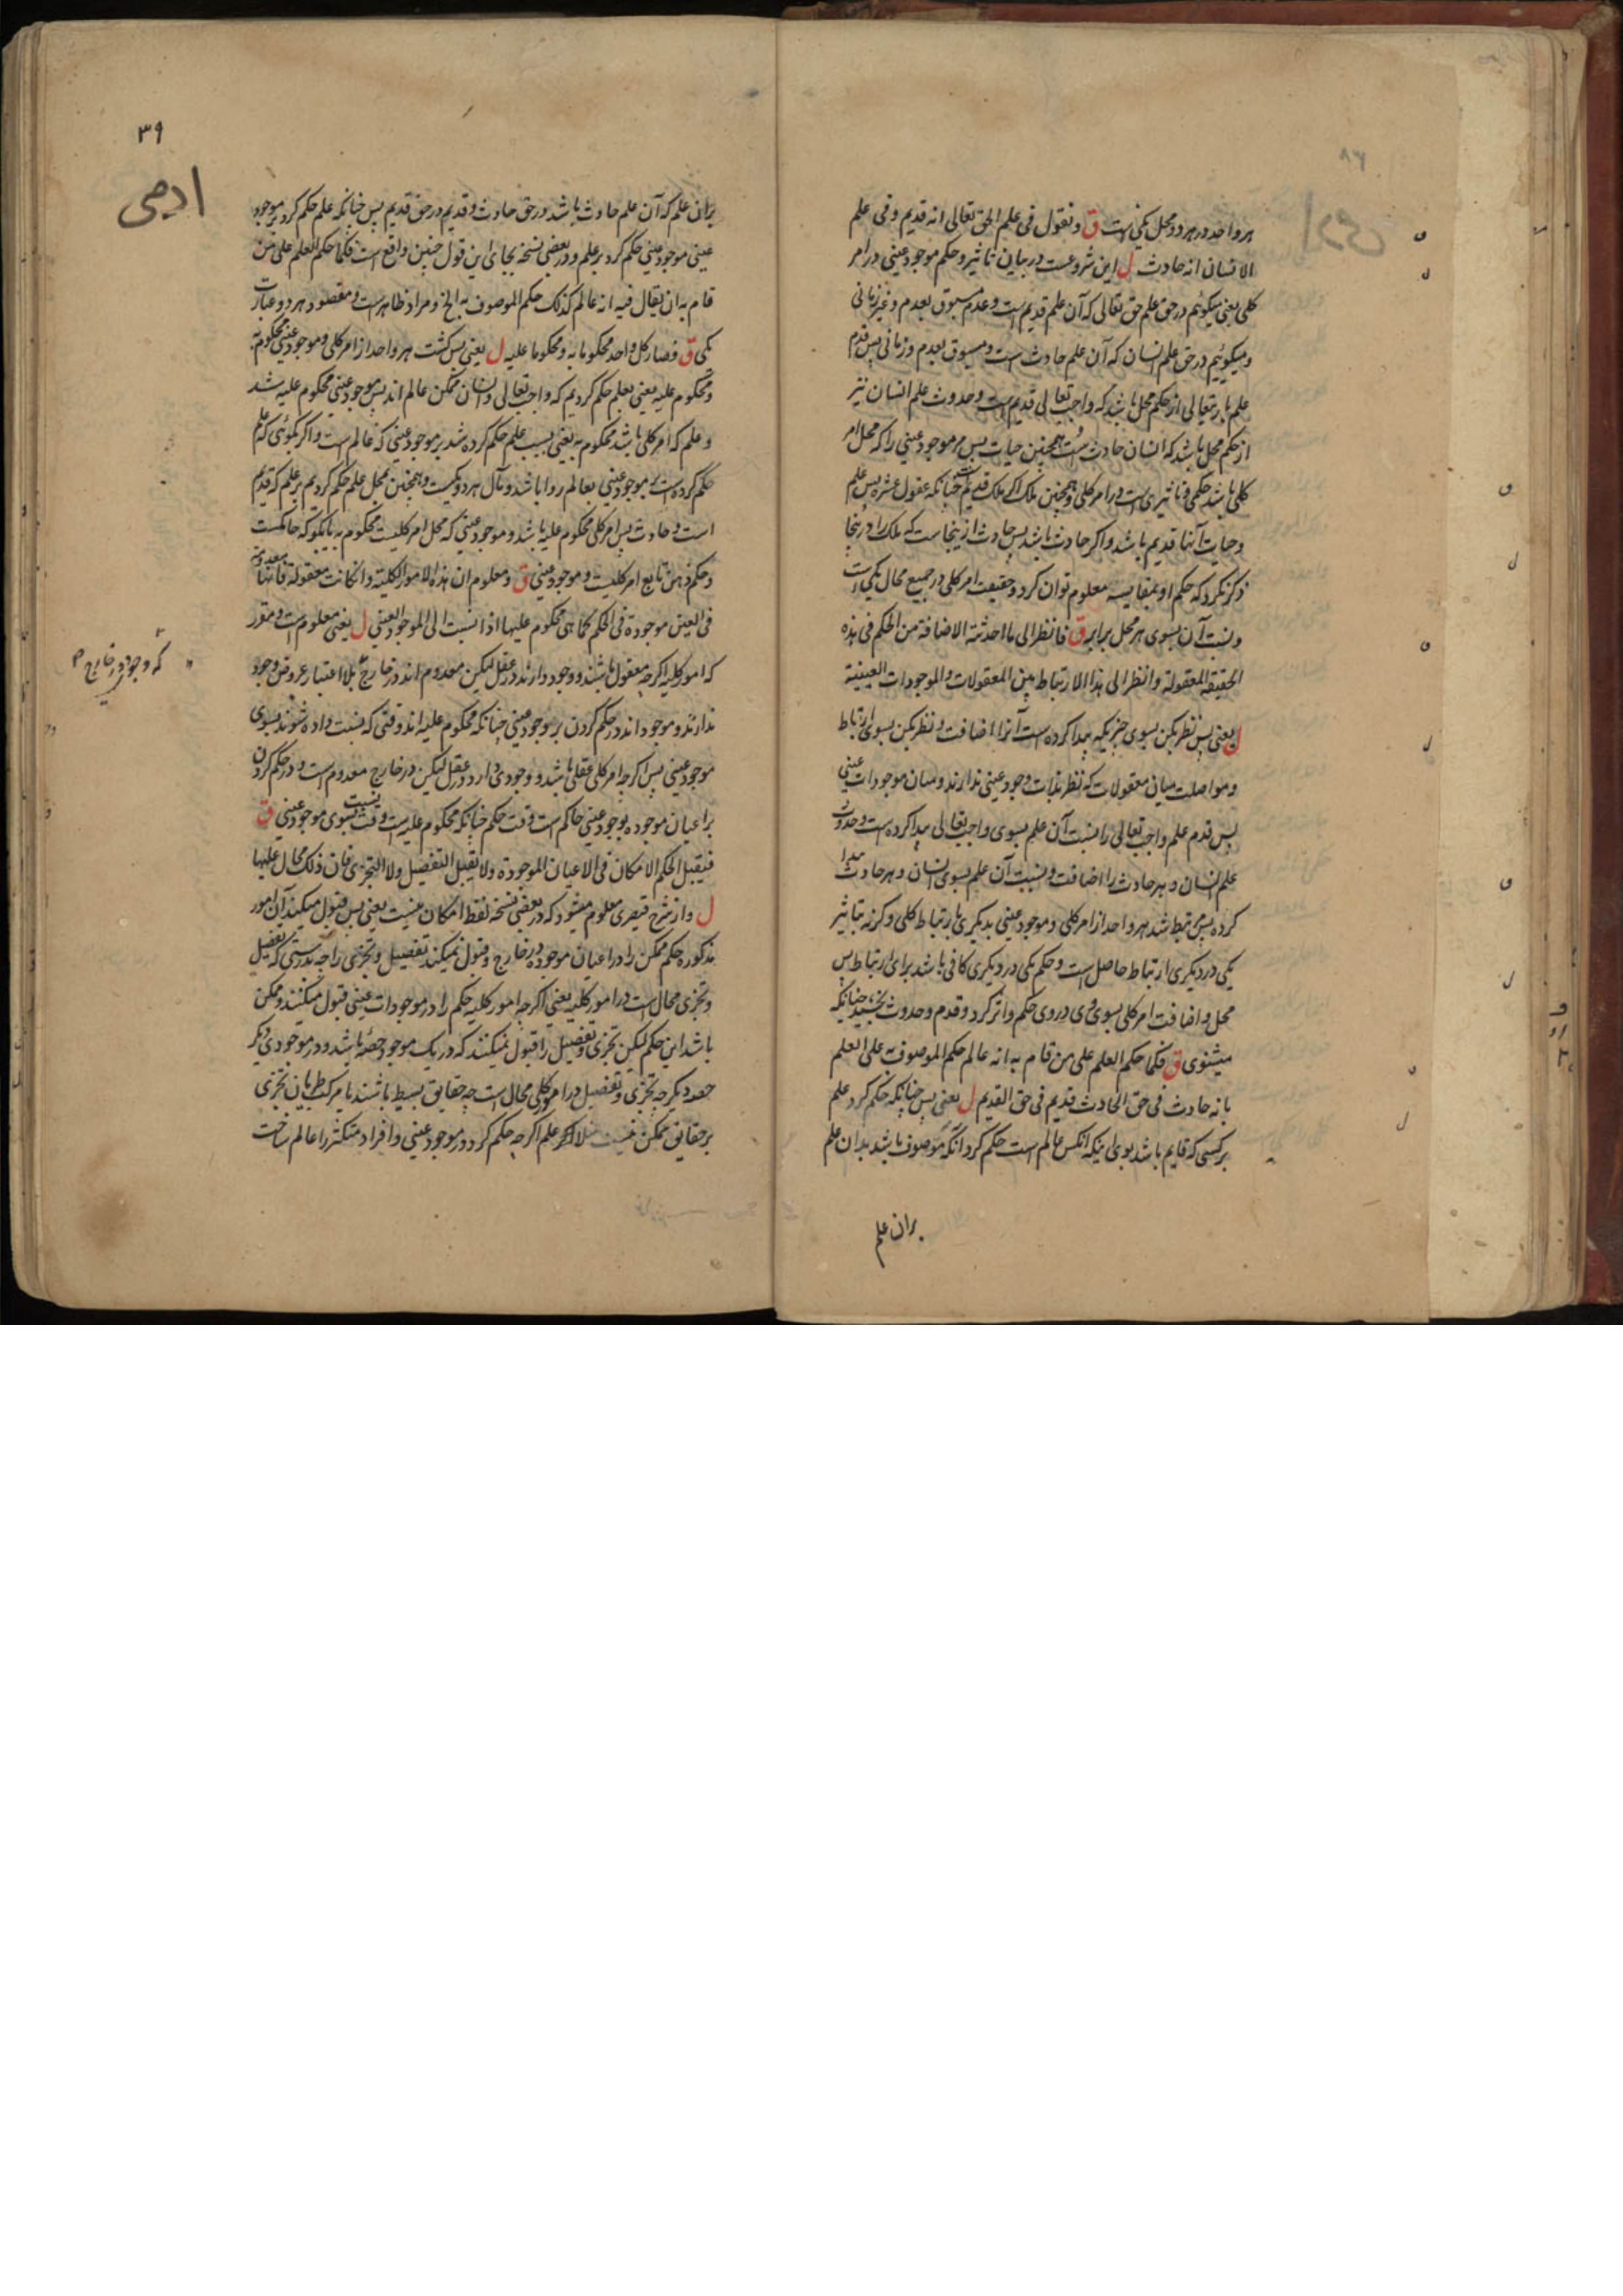 هر واحد در هر دو محل یکی است ق و نقول فی علم الحق تعالی انه قدیم و فی علم
الانسان انه حادث ل این شروعست در بیان تاثیر و حکم موجود عینی در امر
کلی یعنی میکوئیم در حق علم حق تعالی که آن علم قدیم است و عدم مسبوق بعدم و غیر زمانی
و میکوئیم در حق علم انسان که آن علم حادث است و مسبوق بعدم و زمانی پس قدم
علم باریتعالی از حکم محل باشد که واجب تعالی قدیم است و حدوث علم انسان نیز
از حکم محل باشد که انسان حادث است همچنین حیات پس هر موجود عینی را که محل امر
کلی باشد حکمی و تاثیری است در امر کلی و همچنین ملک اکر ملک قدیم است چنانکه عقول عشره پس علم
و حیات آنها قدیم باشد و اکر حادث باشد پس حادث ازینجاست که ملک را درینجا
ذکر نکرد که حکم او بمقایسه معلوم توان کرد و حقیقت امر کلی در جمیع محال یکی است
و نسبت آن بسوی هر محل برابر ق فانظر الی ما احدثته الاضافة من الحکم فی هذه
الحقیقة المعقولة وانظر الی هذا الارتباط بین المعقولات والموجودات العینیة
ل یعنی پس نظر بکن بسوی چیزیکه پیدا کرده است آنرا اضافت و نظر بکن بسوی ارتباط
و مواصلت میان معقولات که نظر بذات وجود عینی ندارند و میان موجودات عینی
پس قدم علم واجب تعالی را نسبت آن علم بسوی واجب تعالی پیدا کرده است و حدوث
علم انسان و هر حادث را اضافت و نسبت آن علم بسوی انسان و هر حادث پیدا
کرده پس مرتبط شد هر واحد از امر کلی و موجود عینی بدیکری بارتباط کلی و کرنه بتاثیر
یکی در دیکری ارتباط حاصل است و حکم یکی در دیکری کافی باشد برای ارتباط پس
محل و اضافت امر کلی بسوی وی در وی حکم و اثر کرد و قدم و حدوث بخشید چنانکه
میشنوی ق فکما حکم العلم علی من قام به انه عالم حکم الموصوف به علی العلم
بانه حادث فی حق الحادث قدیم فی حق القدیم ل یعنی پس چنانکه حکم کرد علم
بر کسی که قایم باشد بوی اینکه انکس عالم است حکم کرد آنکه موصوف باشد بدان علم
بران علم
۳۹
ادمی
بران علم که آن علم حادث باشد در حق حادث و قدیم در حق قدیم پس چنانکه علم حکم کرد بر موجود
عینی موجود عینی حکم کرد بر علم و در بعضی نسخه بجای این قول چنین واقع است فکما حکم العلم علی من
قام به ان یقال فیه انه عالم کذلک حکم الموصوف به الخ و مراد ظاهر است و مقصود هر دو عبارت
یکی ق فصار کل واحد محکوما به و محکوما علیه ل یعنی پس کشت هر واحد از امر کلی و موجود عینی محکوم به
و محکوم علیه یعنی بعلم حکم کردیم که واجب تعالی و انسان ممکن عالم اند پس موجود عینی محکوم علیه شد
و علم که امر کلی باشد محکوم به یعنی بسبب علم حکم کرده شد بر موجود عینی که عالم است و اکر بکوئی که علم
حکم کرده است بر موجود عینی بعالم روا باشد و مآل هر دو یکیست و همچنین بمحل علم حکم کردیم بر علم که قدیم
است و حادث پس امر کلی محکوم علیه باشد و موجود عینی که محل امر کلیست محکوم به یا بکو که حاکمست
و حکم ذهن تابع امر کلیست و موجود عینی ق و معلوم ان هذه الامور الکلیة وان کانت معقولة فانها معدومة
فی العین موجودة فی الحکم کما هی محکوم علیها اذا نسبت الی الموجود العینی ل یعنی معلوم است و مقرر
که امور کلیه اکرچه معقول باشند و وجود دارند در عقل لیکن معدوم اند در خارج بلا اعتبار عروض وجود
که وجود در خارج
ندارند و موجود اند در حکم کردن بر موجود عینی چنانکه محکوم علیه اند وقتی که نسبت داده شوند بسوی
موجود عینی پس اکرچه امر کلی عقلی باشد و وجودی دارد در عقل لیکن در خارج معدوم است و در حکم کردن
بر اعیان موجوده بوجود عینی حاکم است وقت حکم چنانکه محکوم علیه است وقت نسبت بسوی موجود عینی ق
فیقبل الحکم الامکان فی الاعیان الموجودة ولا یقبل التفصیل ولا التجزی فان ذلک محال علیها
ل و از شرح قیصری معلوم میشود که در بعضی نسخه لفظ امکان نیست یعنی پس قبول میکند آن امور
مذکوره حکم ممکن را در اعیان موجوده در خارج و قبول نمیکند تفصیل و تجزی را چه بدرستی که تفصیل
و تجزی محال است در امور کلیه یعنی اکرچه امور کلیه حکم را در موجودات عینی قبول میکنند و ممکن
باشد این حکم لیکن تجزی و تفصیل را قبول نمیکنند که در یک موجود حصه باشد و در موجودی دیکر
حصه دیکر چه تجزی و تفصیل در امر کلی محال است چه حقایق بسیط باشند یا مرکب طریان تجزی
بر حقایق ممکن نیست مثلا علم اکرچه حکم کرد در موجود عینی و افراد متکثر را عالم ساخت